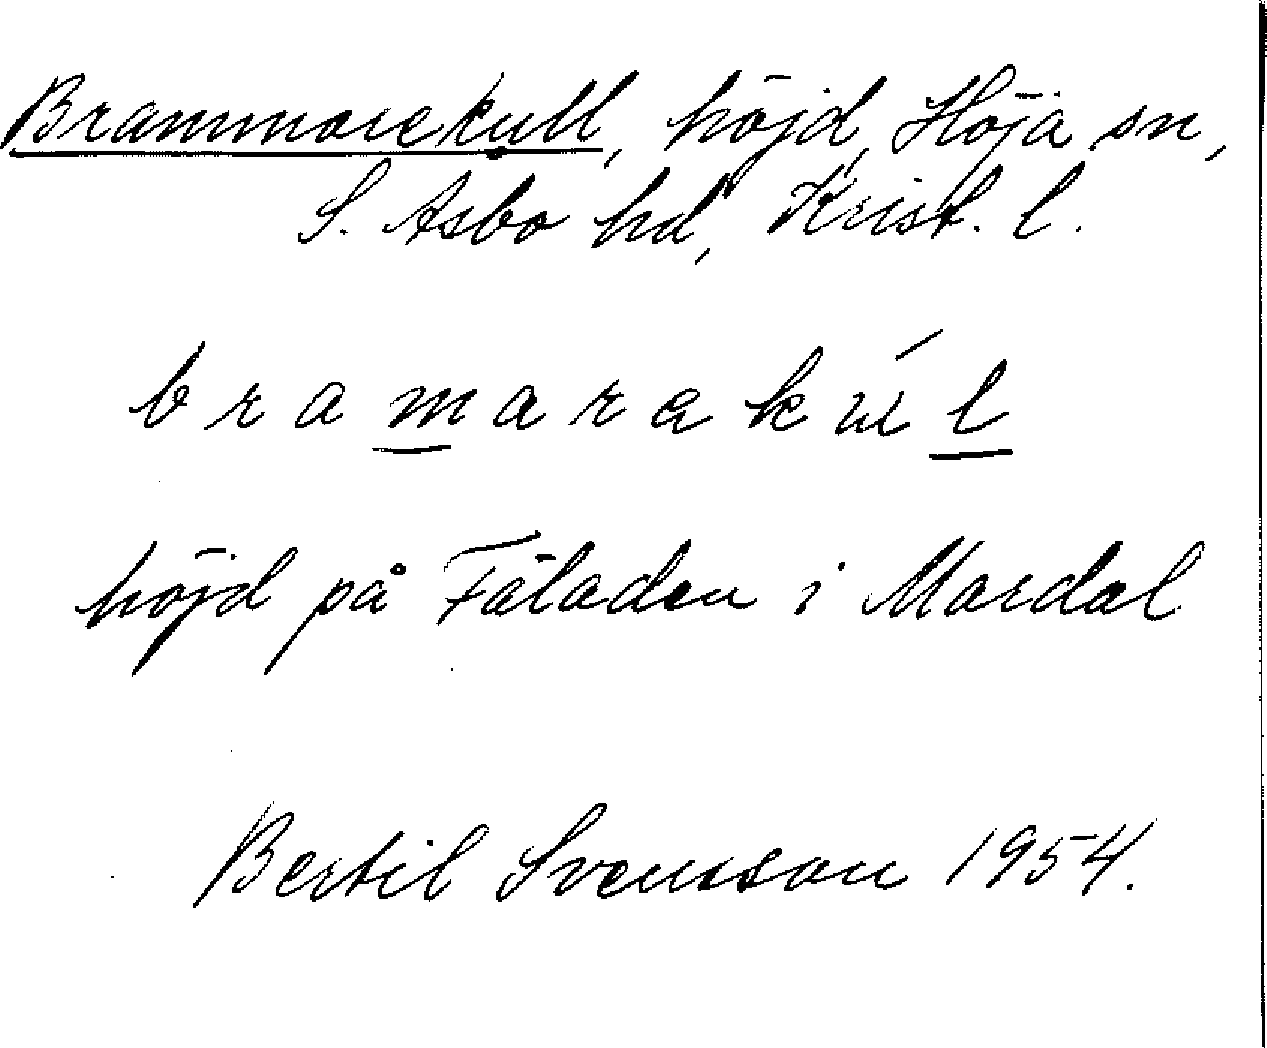 Brammarekull, höjd, Höja sn,
S. Åsbo hd, Krist. l.
bramarakúl
höjd på Fäladen i Mardal
Bertil Svensson 1954.